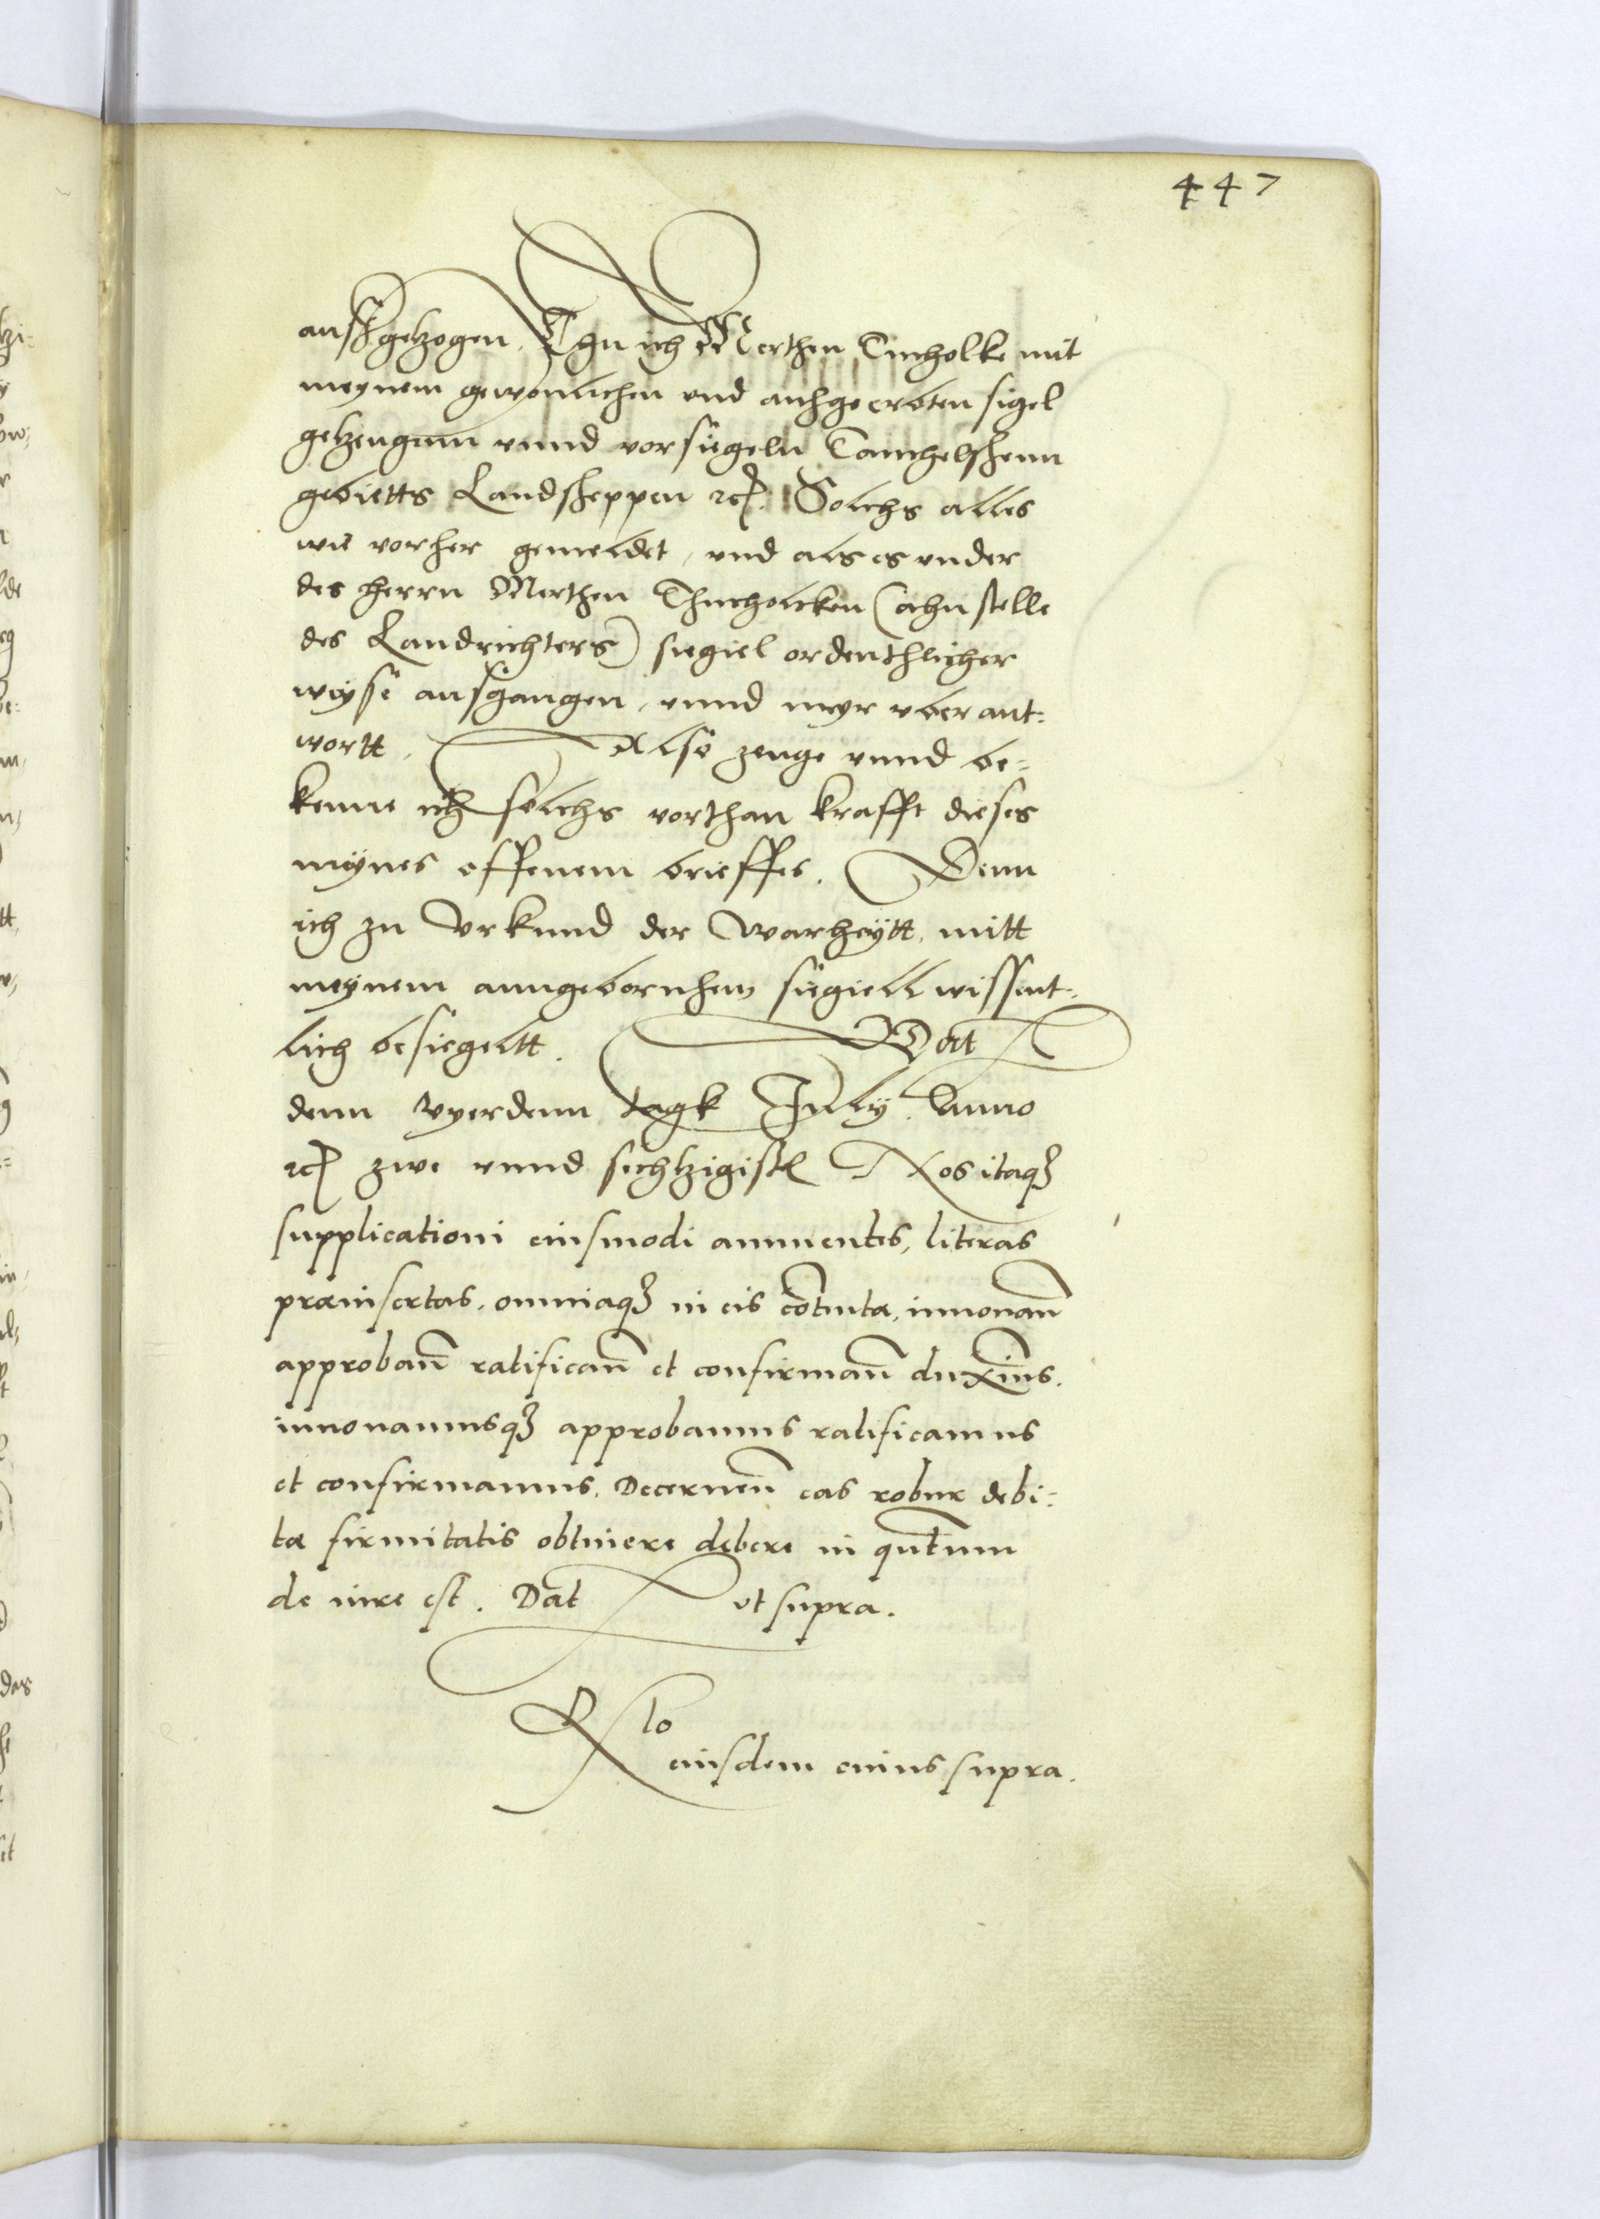 447
außgetzogen, Thu ich Merthen Tucholke mit
meynem gewonlichen und anhgeerbten sigel
getzeugnn unnd vorsiegeln Tauchelschenn
gebietts Landscheppen ꝛc. Solchs alles
wie vorher gemeldet, und als es under
des herrn Merthen Thucholcken (ahn stelle
des Landrichters) siegiel ordenthlicher
weyse ausgangen, unnd meyr uberant-
wortt. Also zeuge unnd be-
kenne ich solchs vorthan krafft dieses
meynes offenem brieffes. Denn
ich zu Urkund der warheytt, mitt
meynem anngebornhen siegiell wissent-
lich besiegeltt. Dat
denn vyerdenn tagk July. Anno
ꝛc zwe unnd sechtzigist Nos itaqꝫ
supplicationi eiusmodi annuentes, literas
præinsertas, omniaqꝫ in eis cōtenta, innouan̄
approban̄ ratifican̄ et confirman̄ duximus.
innouamusqꝫ approbamus ratificamus
et confirmamus. Decernen̄ eas robur debi-
tæ firmitatis obtinere debere in quātum
de iure est. Dat ut supra.
Rlo
eiusdem cuius supra.